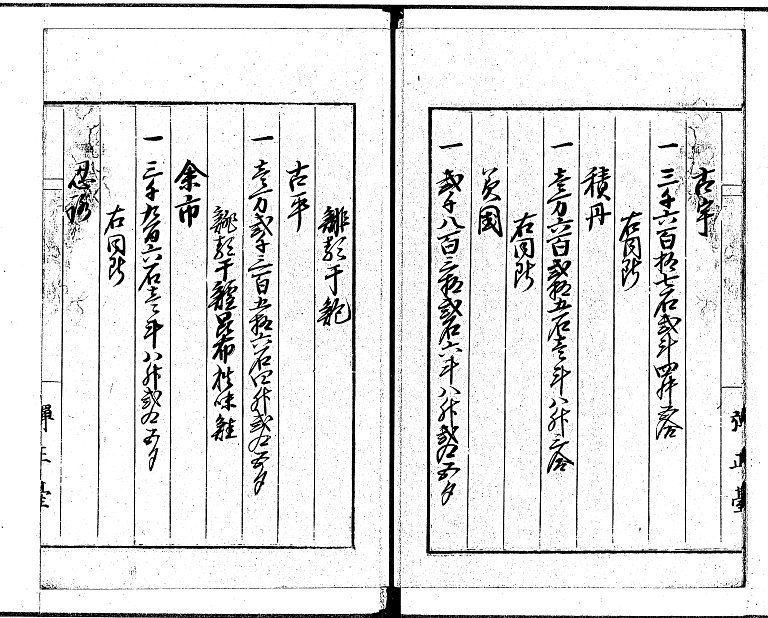 古宇
一 三千六百拾七石弐斗四升五合
右同断
積丹
一 壱万六百弐拾五石壱斗八升三合
右同断
美國
一 弐千八百三拾弐石六斗八升弐合五夕
鯡類干鮑
古平
一 壱万弐千三百五拾六石四升弐合五夕
鯡類干鱈昆布
余市
一 三千九百六石壱斗八升弐合五夕
右同断
忍路
彈正臺
彈正臺